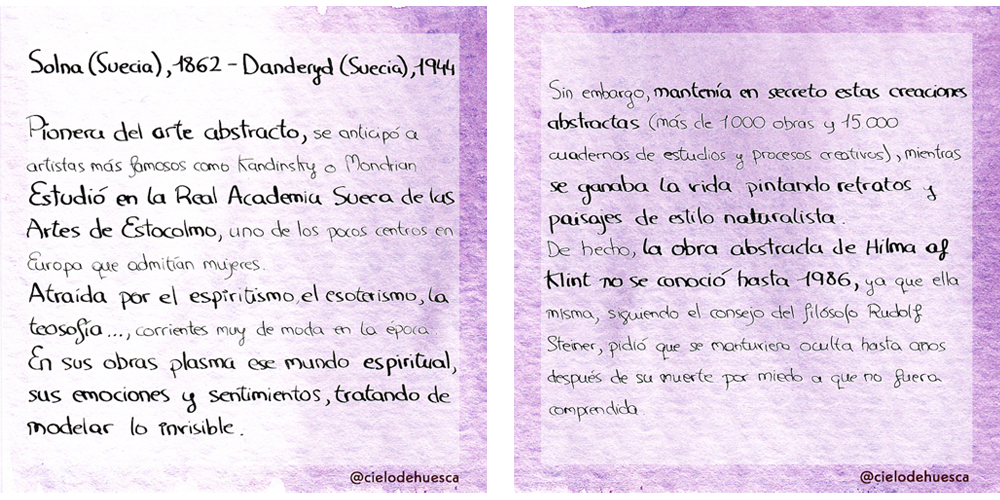 Solna (Suecia), 1862 - Danderyd (Suecia), 1944
Pionera del arte abstracto, se anticipó a
artistas más famosos como Kandinsky o Mondrian
Estudió en la Real Academia Sueca de las
Artes de Estocolmo, uno de los pocos centros en
Europa que admitían mujeres.
Atraída por el espiritismo, el esoterismo, la
teosofía..., corrientes muy de moda en la época.
En sus obras plasma ese mundo espiritual,
sus emociones y sentimientos, tratando de
modelar lo invisible.
@cielodehuesca
Sin embargo, mantenía en secreto estas creaciones
abstractas (más de 1000 obras y 15000
cuadernos de estudios y procesos creativos), mientras
se ganaba la vida pintando retratos y
paisajes de estilo naturalista.
De hecho, la obra abstracta de Hilma af
Klint no se conoció hasta 1986, ya que ella
misma, siguiendo el consejo del filósofo Rudolf
Steiner, pidió que se mantuviera oculta hasta años
después de su muerte por miedo a que no fuera
comprendida
@cielodehuesca